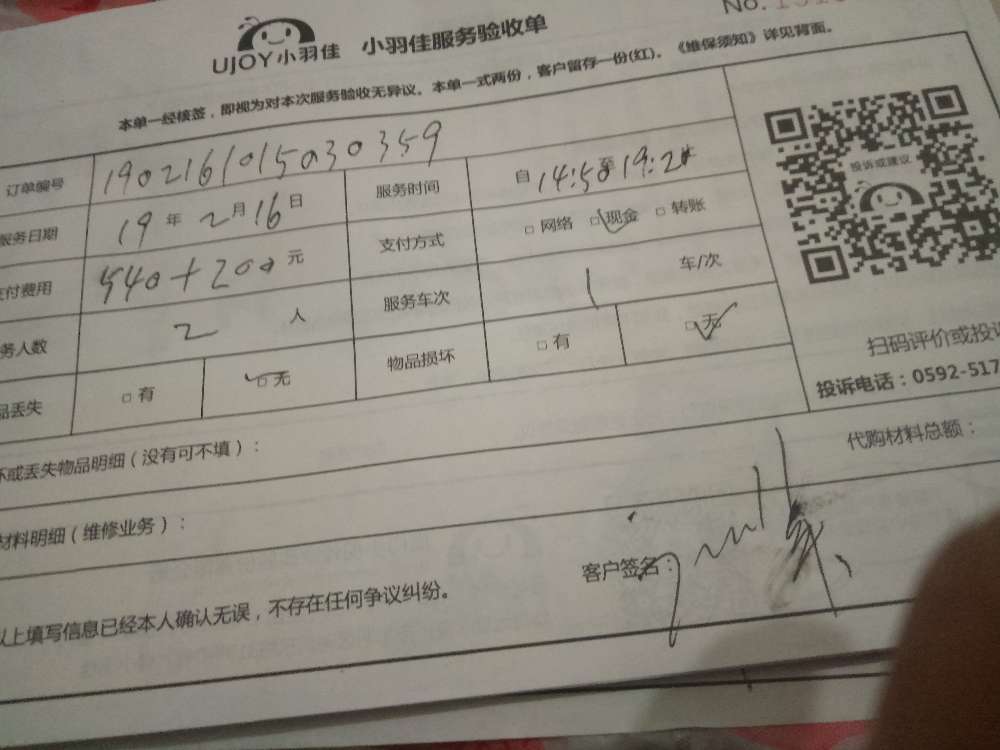 No.
UJOY小羽佳 小羽佳服务验收单
本单一经核签，即视为对本次服务验收无异议。本单一式两份，客户留存一份(红)。《维保须知》详见背面。
订单编号 190216101503035​9
服务日期 19 年 2 月 16 日 服务时间 自 14:50 至 19:2
支付费用 540+200 元 支付方式 □ 网络 □ 现金 □ 转账
务人数 2 人 服务车次 1 车/次
品丢失 □ 有 □ 无 物品损坏 □ 有 □ 无
投诉或建议
扫码评价或投诉
投诉电话：0592-517
坏或丢失物品明细（没有可不填）：
代购材料总额：
材料明细（维修业务）：
以上填写信息已经本人确认无误，不存在任何争议纠纷。
客户签名：